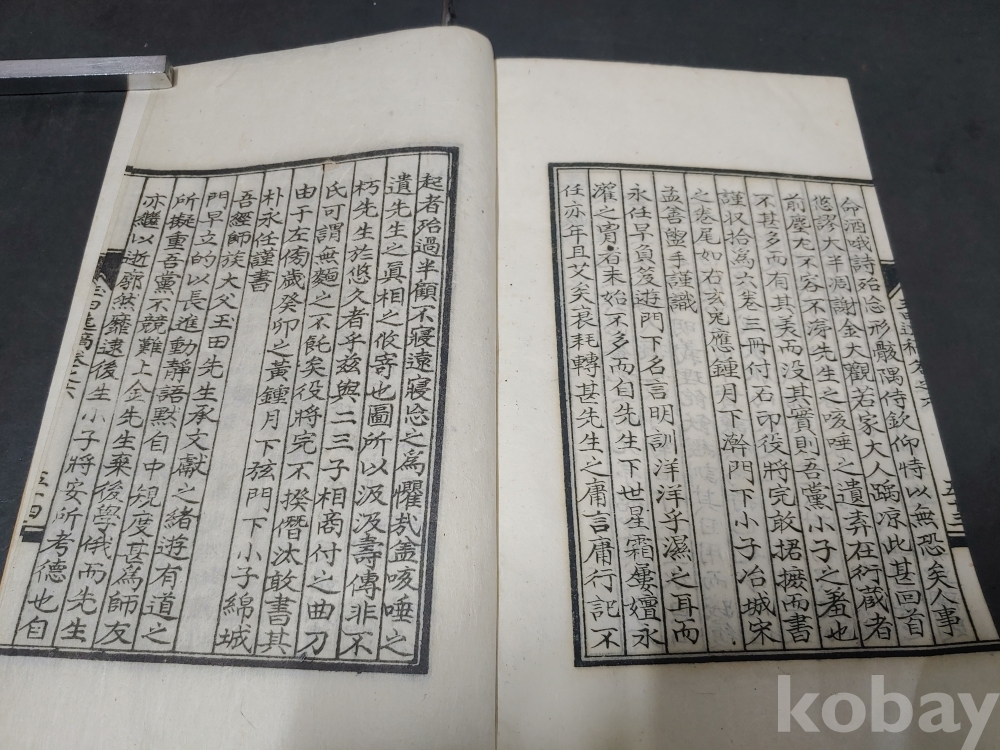 命酒哦詩殆忘形骸隅侍欽仰恃以無恐矣人事
悠謬大半凋謝金大觀若家大人踽凉此甚回首
前塵尤不容不滯先生之咳唾之遺弃在衍蔵者
不甚多而有其美而没其實則吾黨小子之咎也
謹収拾為六卷三冊付石印役將完敢捃摭而書
之卷尾如右玄兎應鍾月下澣門下小子冶城宋
孟善盥手謹識
永任早負笈遊門下名言明訓洋洋乎濕之耳而
灌之胃者未始不多而自先生下世星霜屢嬗永
任亦年且艾矣衰耗轉甚先生之庸言庸行記不
五十三
起者殆過半顧不寢遠寢忘之為懼哉金咳唾之
遺先生之眞相之攸寄也圖所以汲汲壽傳非不
朽先生於悠久者乎玆與二三子相商付之曲刀
氏可謂無麵之不飥矣役將完不揆僭汰敢書其
由于左傍歲癸卯之黃鍾月下弦門下小子綿城
朴永任謹書
吾經師族大父玉田先生承文獻之緒遊有道之
門早立的以長進動静語默自中規度甚為師友
所擬重吾黨不競難上金先生棄後學俄而先生
亦繼以逝廓然靡逮後生小子將安所考德也自
玉田遺稿卷之六
五十四
kobay